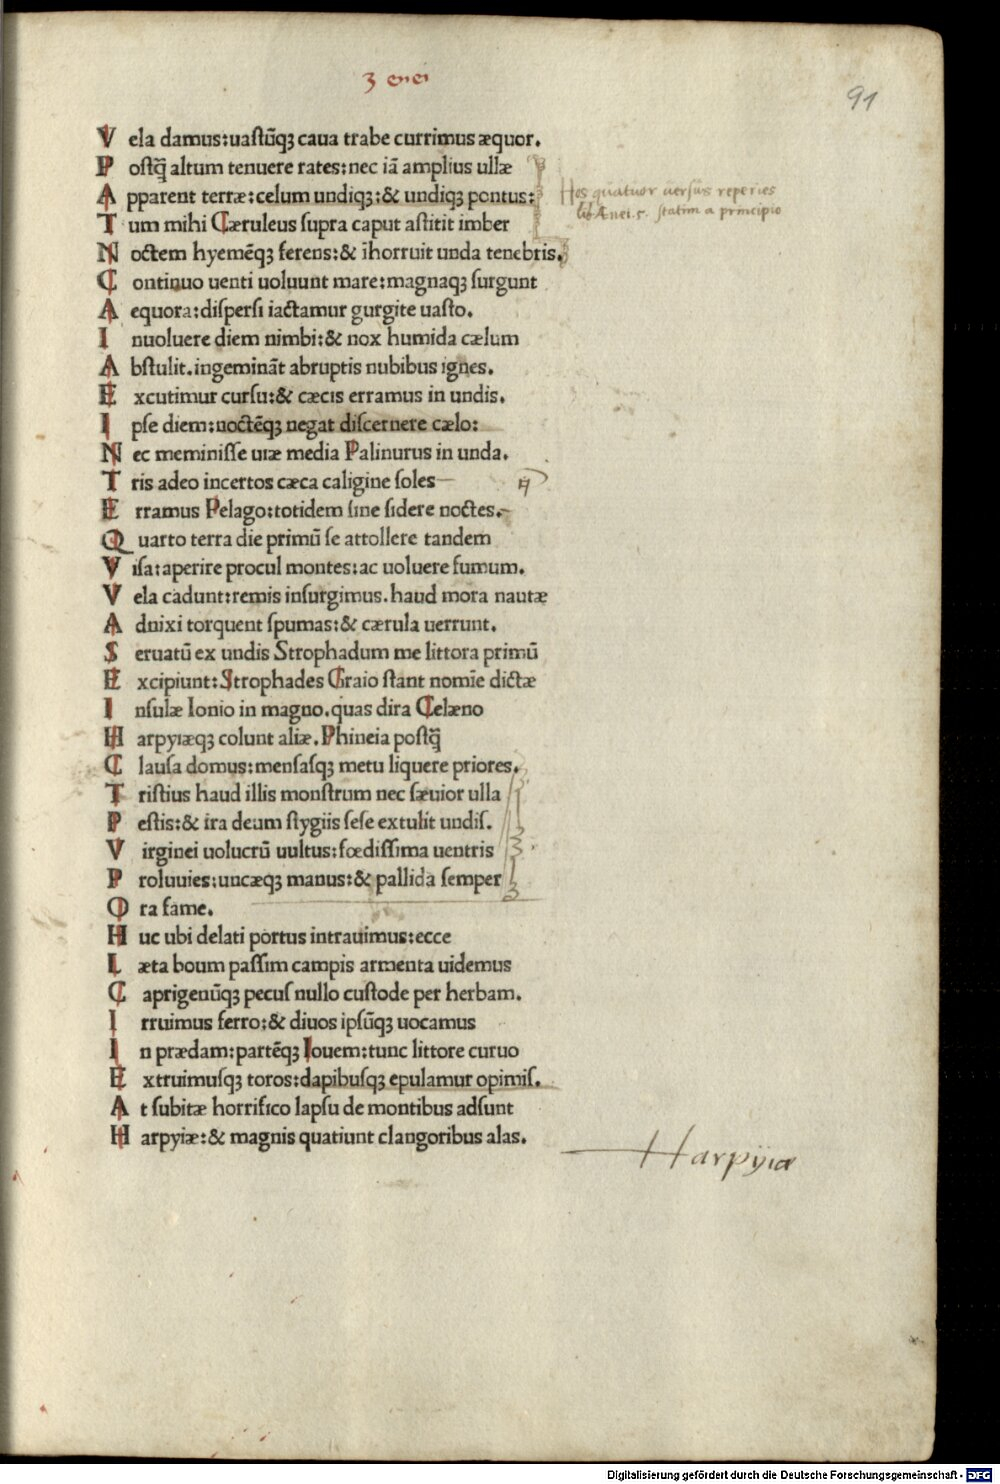 3 enei
91
Vela damus:uastūqꝫ caua trabe currimus æquor.
Postꝗ̄ altum tenuere rates:nec iā amplius ullæ
Apparent terræ:celum undiqꝫ:& undiqꝫ pontus:
Hos quatuor uersus reperies
lib. Aenei. 5. statim a principio
Tum mihi Cæruleus supra caput astitit imber
Noctem hyemēqꝫ ferens:& īhorruit unda tenebris.
Continuo uenti uoluunt mare:magnaqꝫ surgunt
Aequora:dispersi iactamur gurgite uasto.
Inuoluere diem nimbi:& nox humida cælum
Abstulit.ingemināt abruptis nubibus ignes.
Excutimur cursu:& cæcis erramus in undis.
Ipse diem:noctēqꝫ negat discernere cælo:
Nec meminisse uiæ media Palinurus in unda.
Tris adeo incertos cæca caligine soles
Erramus Pelago:totidem sine sidere noctes.
Quarto terra die primū se attollere tandem
Visa:aperire procul montes:ac uoluere fumum.
Vela cadunt:remis insurgimus.haud mora nautæ
Adnixi torquent spumas:& cærula uerrunt.
Seruatū ex undis Strophadum me littora primū
Excipiunt:Strophades Graio stant nomīe dictæ
Insulæ Ionio in magno.quas dira Celæno
Harpyiæqꝫ colunt aliæ.Phineia postꝗ̄
Clausa domus:mensasqꝫ metu liquere priores.
Tristius haud illis monstrum nec sæuior ulla
Pestis:& ira deum stygiis sese extulit undis.
Virginei uolucrū uultus:fœdissima uentris
Proluuies:uncæqꝫ manus:& pallida semper
Ora fame.
Huc ubi delati portus intrauimus:ecce
Læta boum passim campis armenta uidemus
Caprigenūqꝫ pecus nullo custode per herbam.
Irruimus ferro:& diuos ipsūqꝫ uocamus
In prædam:partēqꝫ Iouem:tunc littore curuo
Extruimusqꝫ toros:dapibusqꝫ epulamur opimis.
At subitæ horrifico lapsu de montibus adsunt
Harpyiæ:& magnis quatiunt clangoribus alas.
Harpyiæ
Digitalisierung gefördert durch die Deutsche Forschungsgemeinschaft - DFG